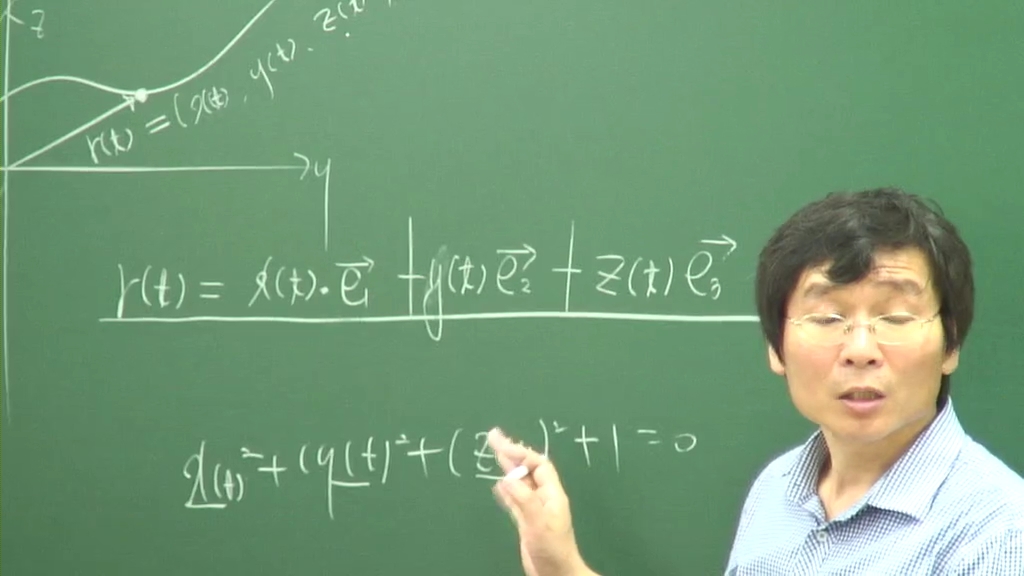 z
r(t) = (x(t), y(t), z(t)
y
r(t) = x(t)·e₁⃗ + y(t) e₂⃗ + z(t) e₃⃗
x(t)² + (y(t)² + (z )² + 1 = 0